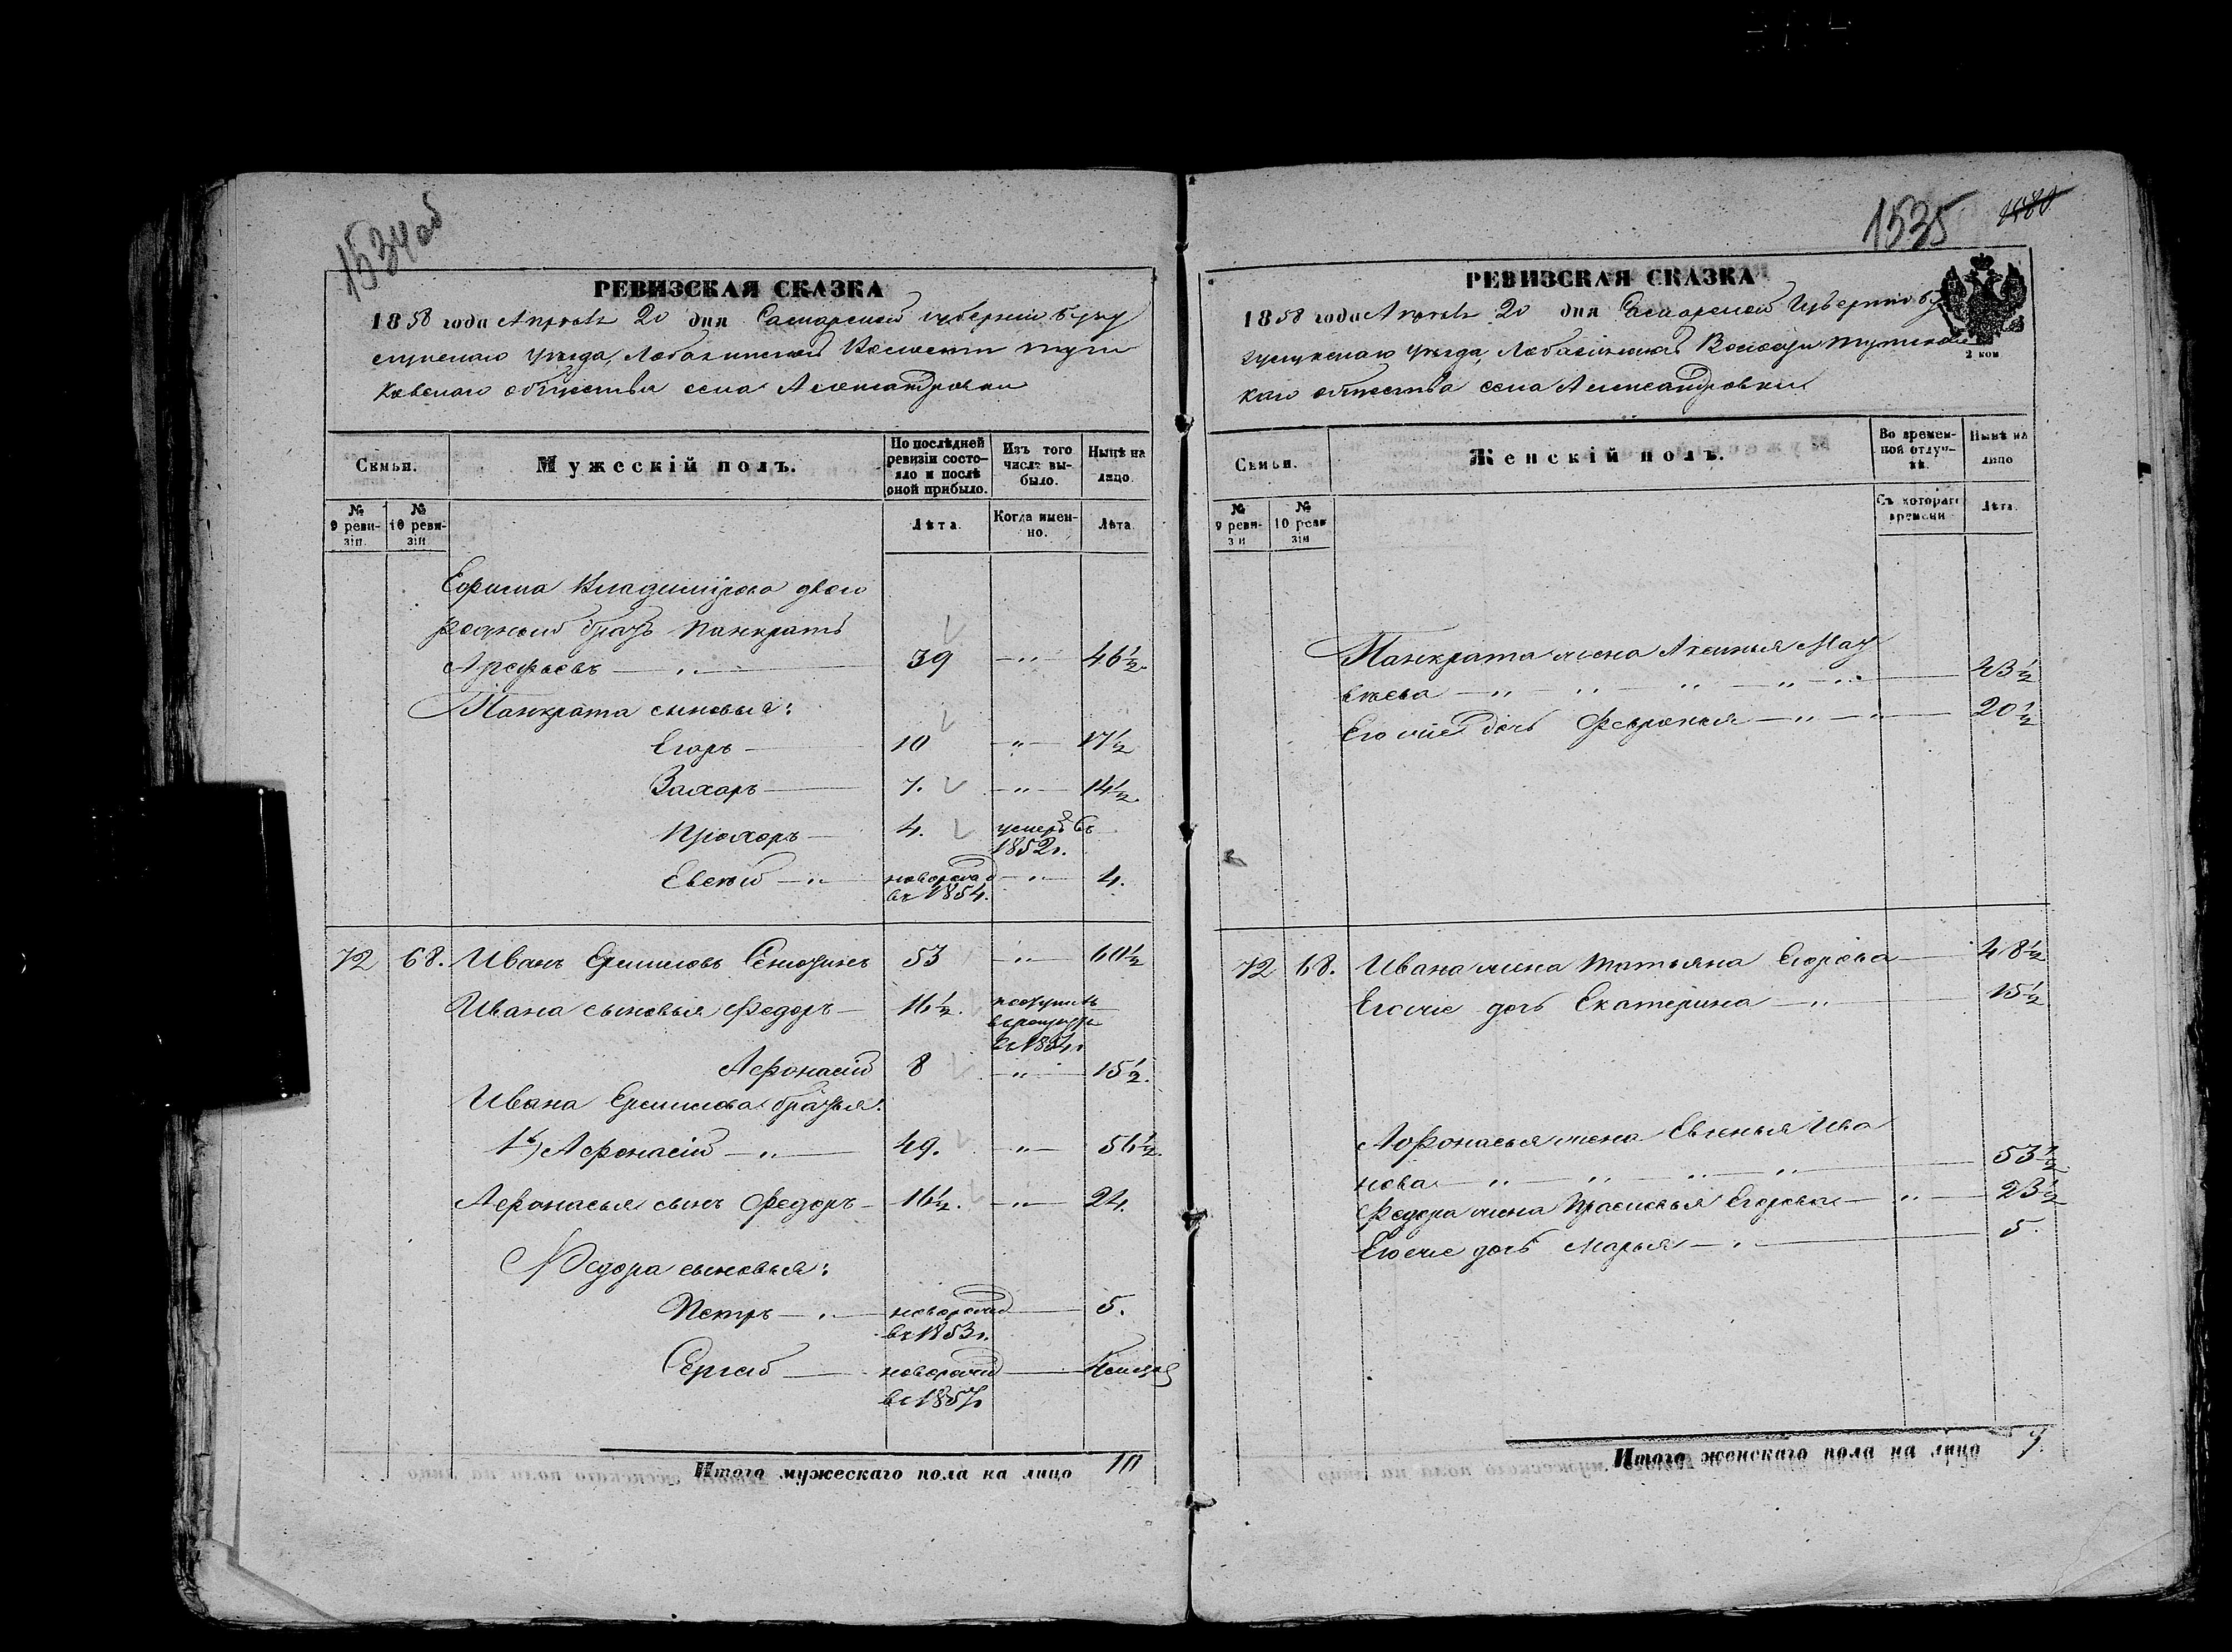 1534об
РЕВИЗСКАЯ СКАЗКА
1858 года Апреля 20 дня Самарской губернии Бугу
русланскаго уезда, Лобазинской Волости
ковскаго общества села Александровки
Семьи.
Мужескій полъ.
По послѣдней ревизіи состояло и послѣ оной прибыло.
Изъ того числа выбыло.
Нынѣ на лицо.
№ 9 ревизіи.
№ 10 ревизіи
Лѣта.
Когда именно.
Лѣта
Ефима Владимірова двою
родный братъ Панкратъ
Арефьевъ — " — 39 — " — 46½.
Панкрата сыновья:
Егоръ — 10 — " — 17½
Захаръ — 7. — " — 14½.
Прохоръ — 4. умеръ въ
1852г.
Евсѣй — " — новорожд — " — 4.
въ 1854.
72 68. Иванъ Ермиловъ 53 — " — 60½
Ивана сыновья Федоръ — 16½. поступилъ
в рекруты
въ 1854г
Афонасій 8 — " — 15½.
Ивана Ермилова братья:
1й) Афонасій — " — 49. — " — 56½.
Афонасья сынъ Федоръ — 16½. — " — 24.
Федора сыновья:
Петръ — " — новорожд — 5.
въ 1853г.
Сергей — новорожд —
въ 1857г
Итого мужескаго пола на лицо 10
1535
РЕВИЗСКАЯ СКАЗКА
1858 года Апреля 20 дня Самарской Губерніи Бу
гурусланскаго уезда, Лобазинской Волости
каго общества села Александровки
2 коп
Семьи.
Женскій полъ.
Во временной отлучкѣ.
Нынѣ на лицо
№ 9 ревизіи
№ 10 ревизіи
Съ котораго времени
Лѣта.
Панкрата жена Аксинья Мат
веева — " — " — " — " — " — 43½
Его же дочь Февронья — " — " — 20½
72 68. Ивана жена Татьяна Егорова — 48½
Его же дочь Екатерина — " — 15½
Афонасья жена Евгенья Ива
нова — " — " — " — " — 53½
Федора жена Прасковья Егорова — " — 23½
Его же дочь Марья — " — 5.
Итого женскаго пола на лицо 7